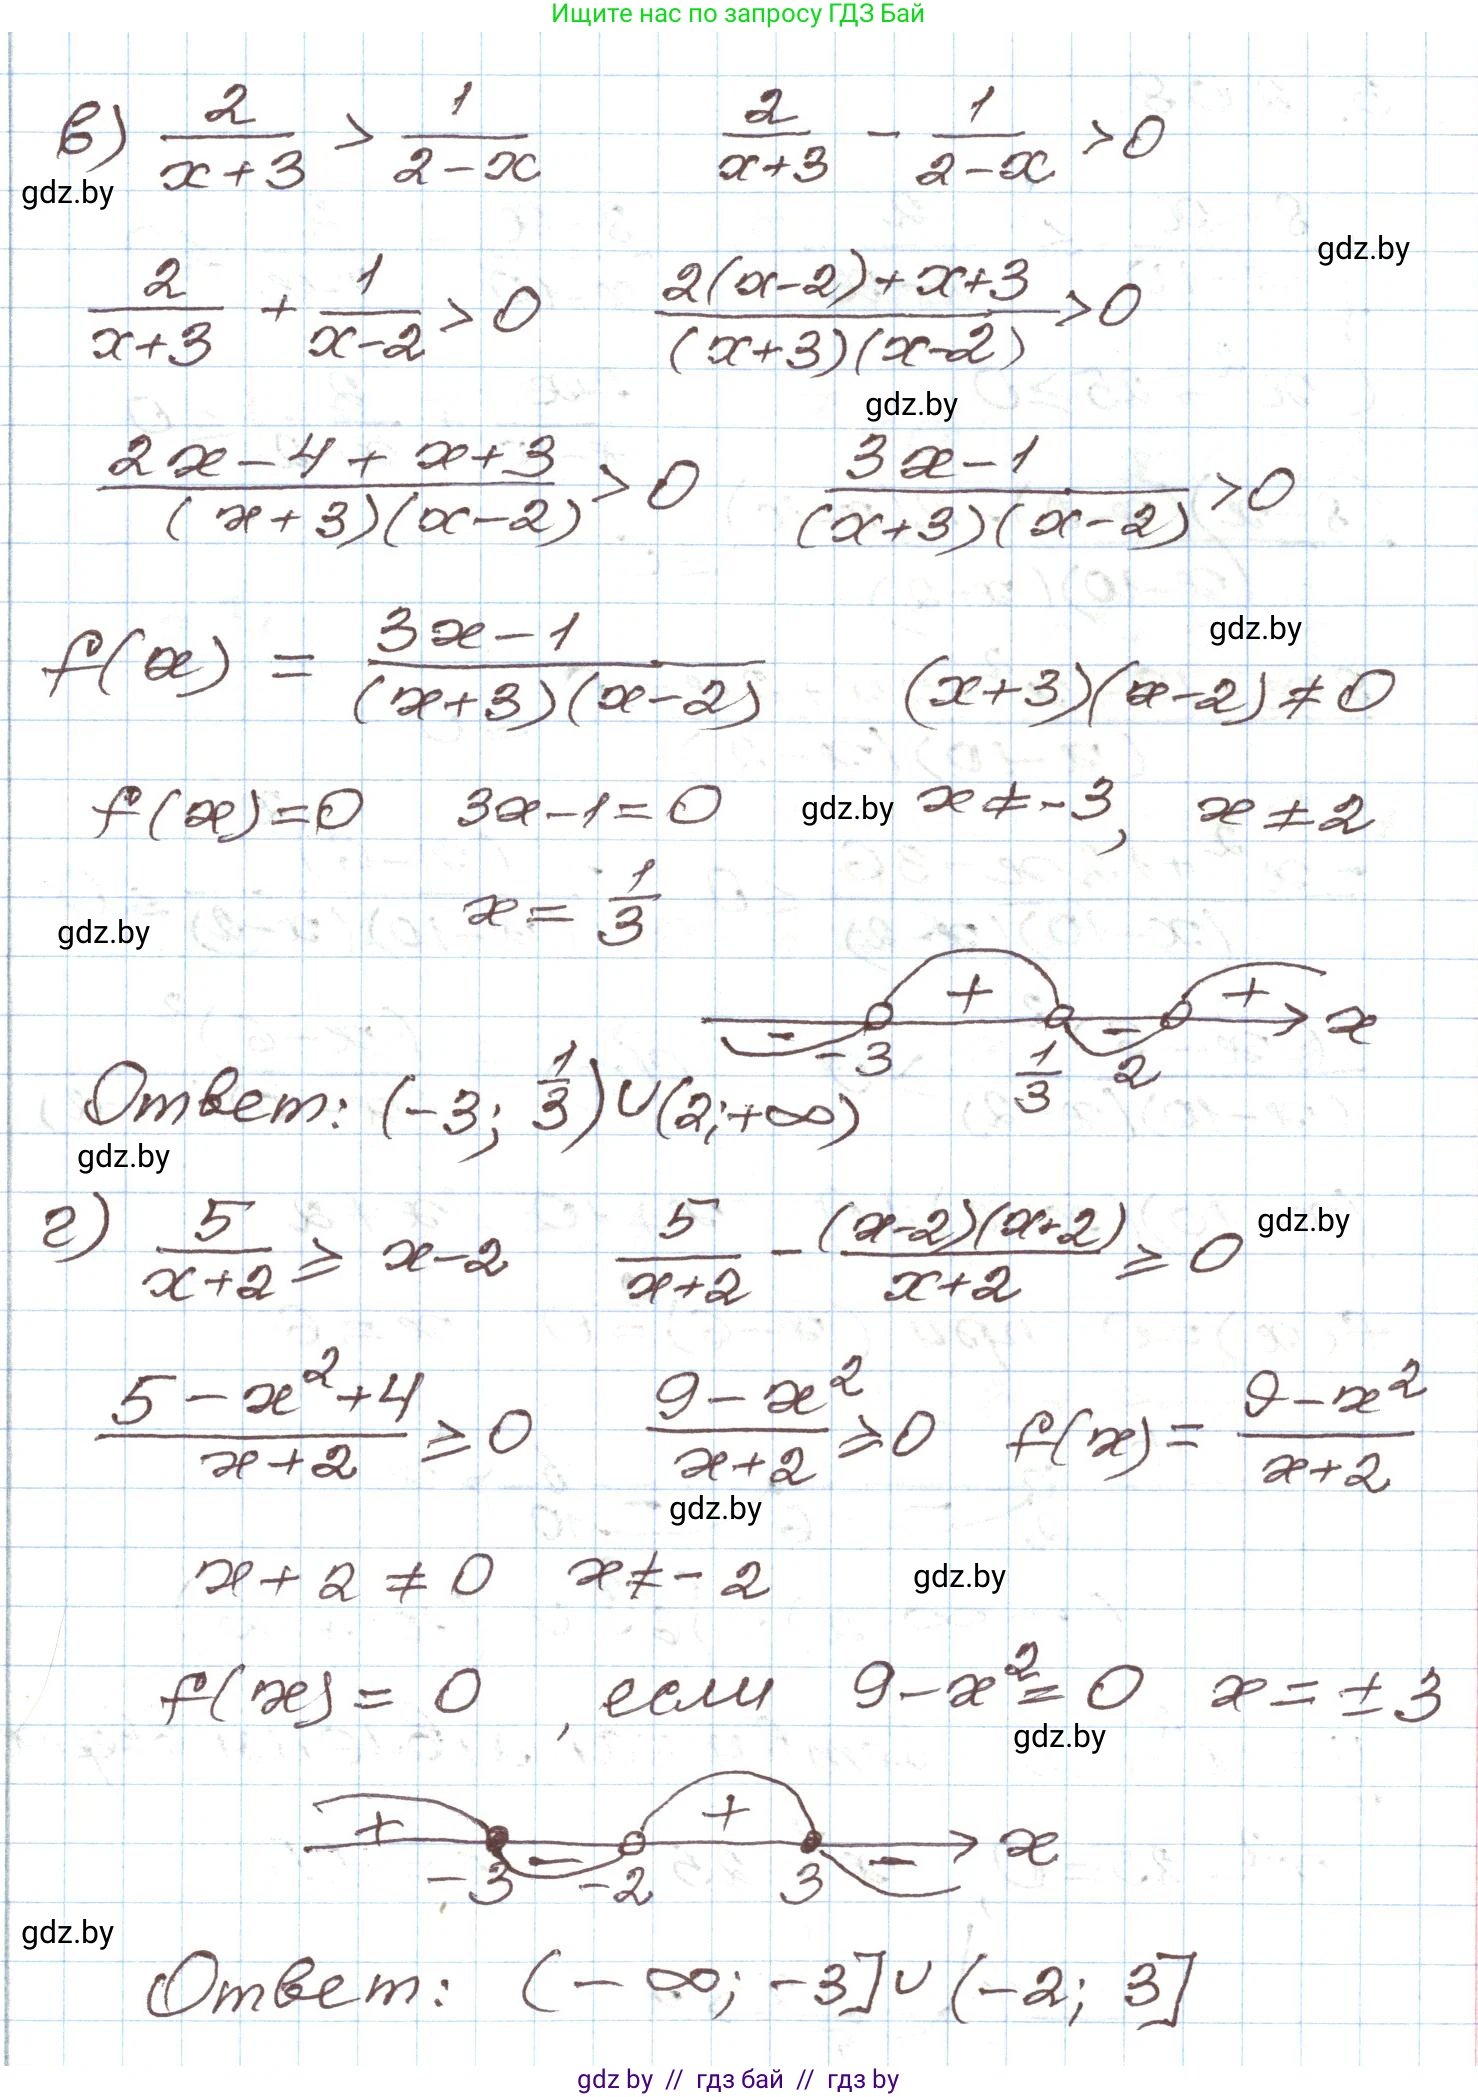 Ищите нас по запросу ГДЗ Бай
в) 2/(x+3) > 1/(2-x)   2/(x+3) - 1/(2-x) > 0
gdz.by
gdz.by
2/(x+3) + 1/(x-2) > 0   (2(x-2)+x+3)/((x+3)(x-2)) > 0
gdz.by
(2x-4+x+3)/((x+3)(x-2)) > 0   (3x-1)/((x+3)(x-2)) > 0
gdz.by
f(x) = (3x-1)/((x+3)(x-2))   (x+3)(x-2) ≠ 0
f(x)=0   3x-1=0   gdz.by   x≠-3, x≠2
x = 1/3
gdz.by
- + - + x
-3 1/3 2
Ответ: (-3; 1/3)∪(2;+∞)
gdz.by
г) 5/(x+2) ≥ x-2   5/(x+2) - ((x-2)(x+2))/(x+2) ≥ 0   gdz.by
(5-x²+4)/(x+2) ≥ 0   (9-x²)/(x+2) ≥ 0   f(x) = (9-x²)/(x+2)
gdz.by
x+2≠0   x≠-2   gdz.by
f(x) = 0, если 9-x²=0   x=±3
gdz.by
+ - + - x
-3 -2 3
gdz.by
Ответ: (-∞; -3]∪(-2; 3]
gdz by // гдз бай // гдз by